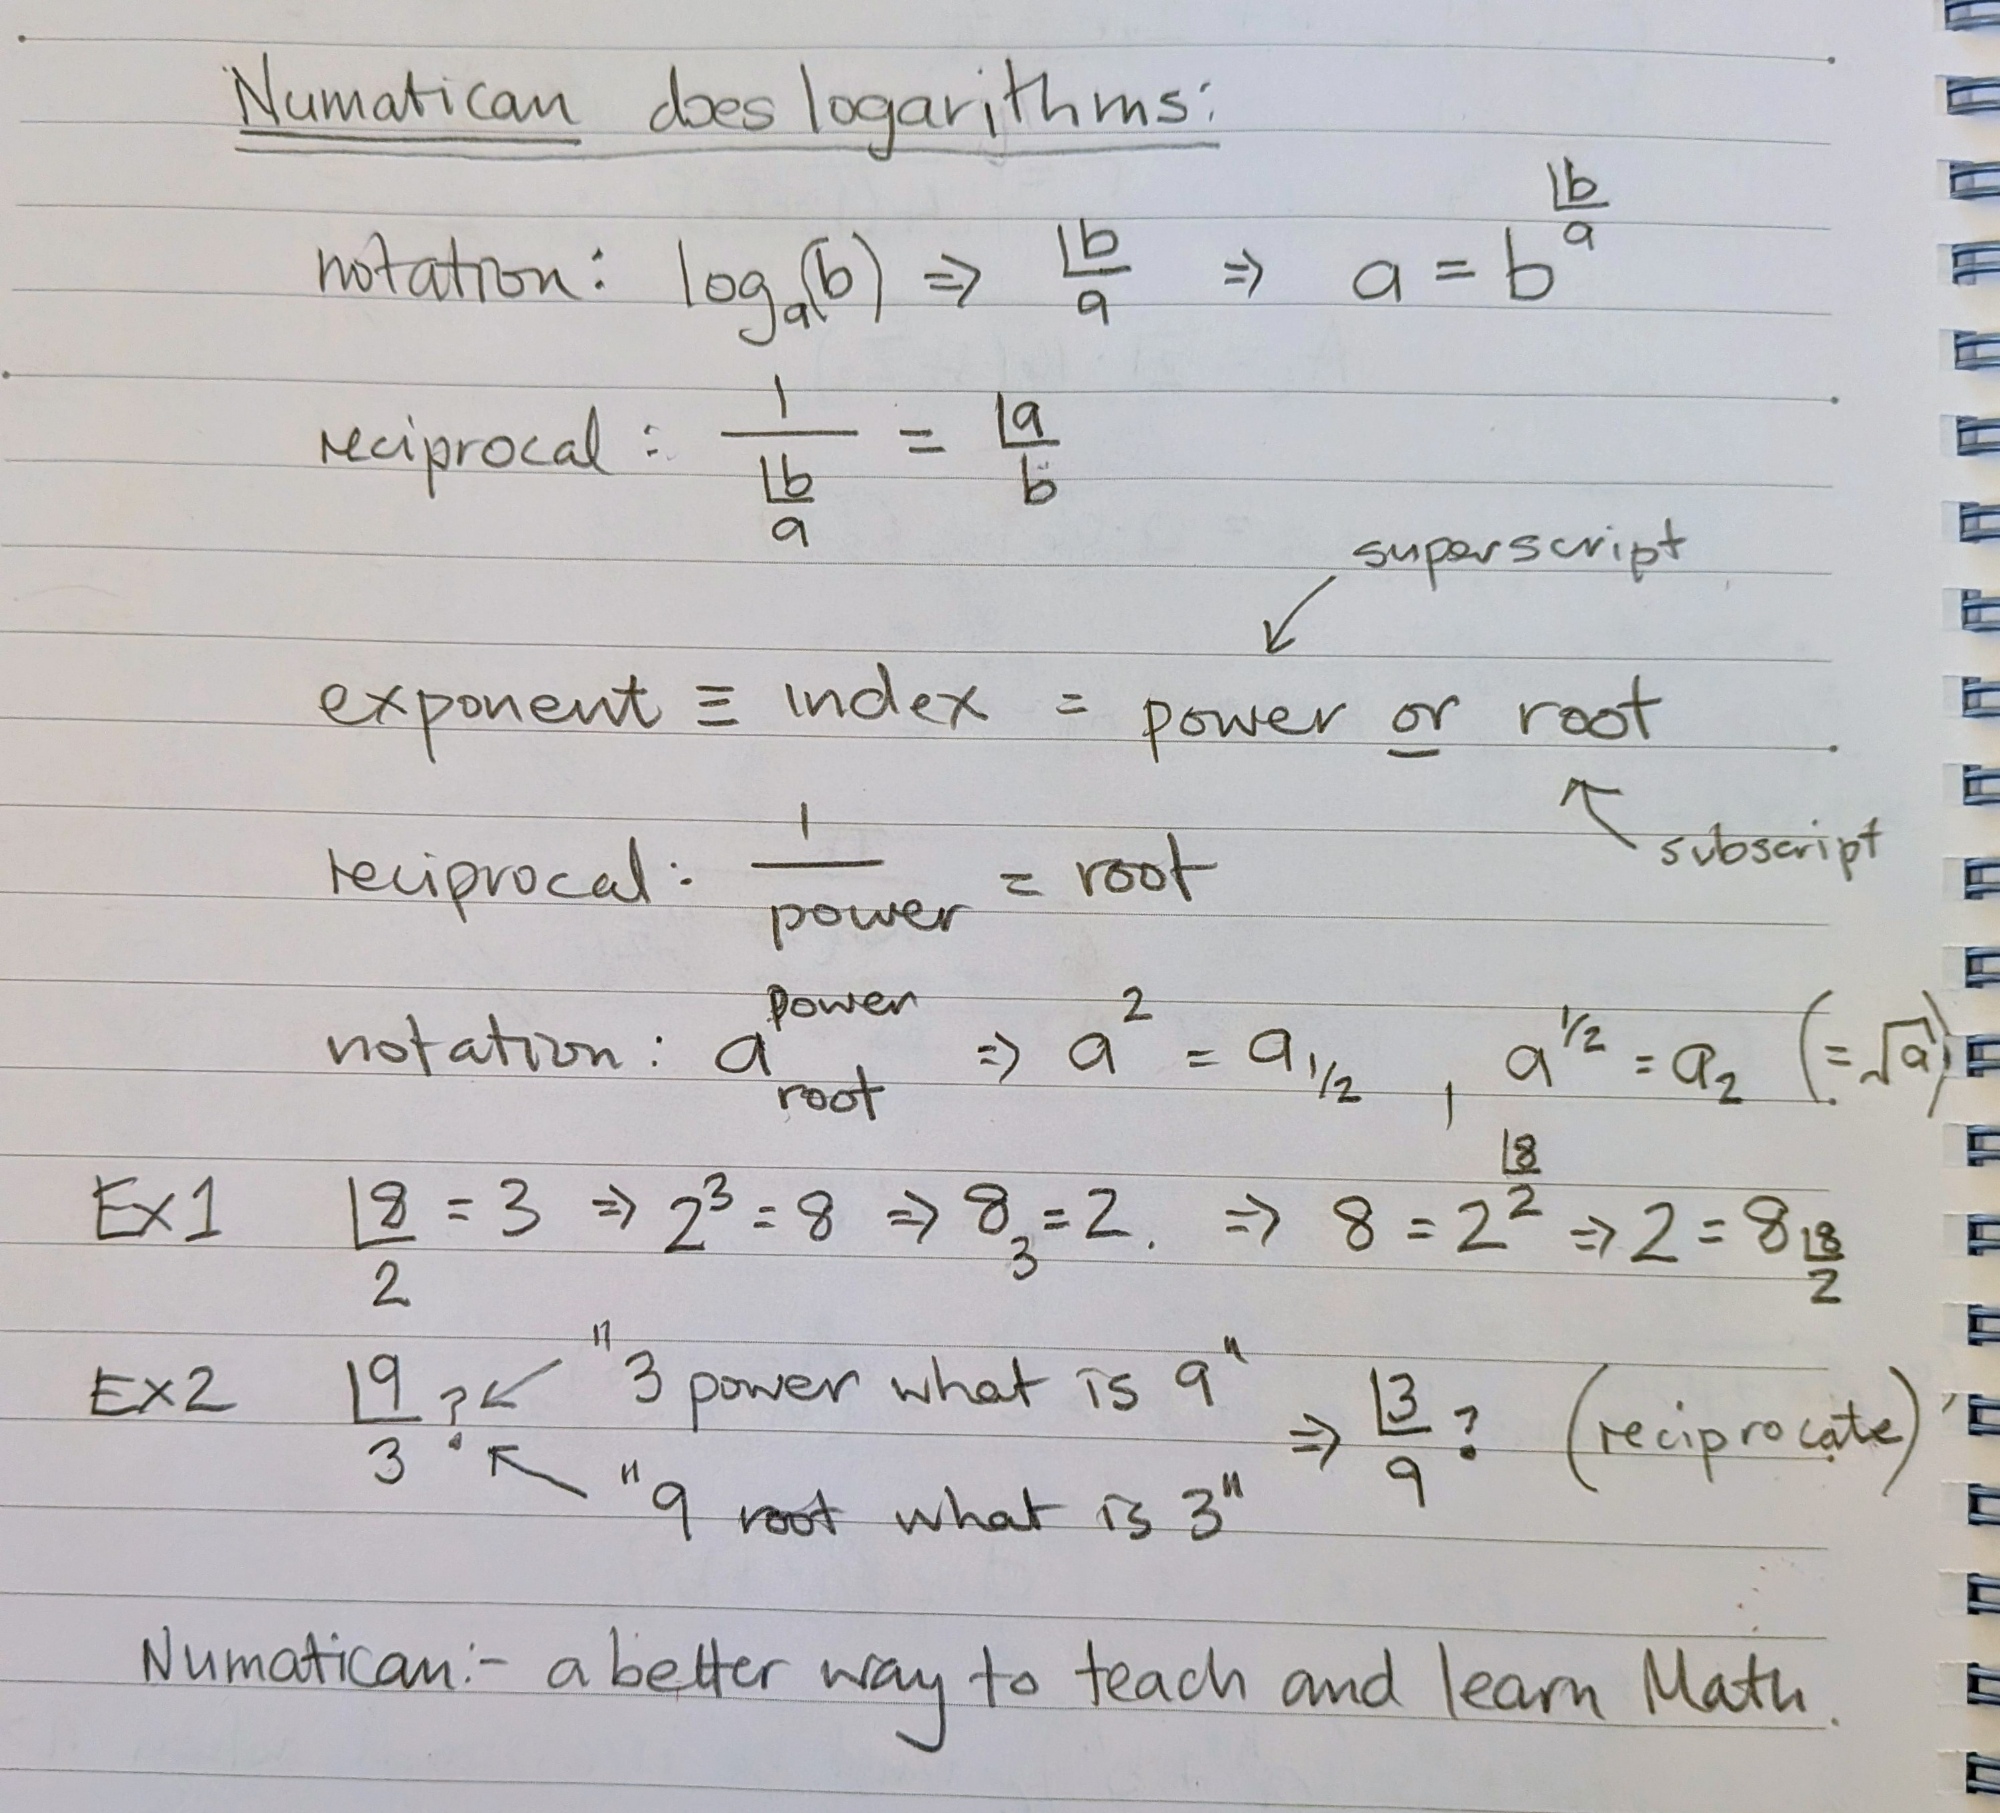 Numatican does logarithms:
notation: logₐ(b) ⇒ ⌊b/a ⇒ a = b^(⌊b/a)
reciprocal: 1/(⌊b/a) = ⌊a/b
superscript
exponent ≡ index = power or root
subscript
reciprocal: 1/power = root
notation: a^power_root ⇒ a² = a_1/2 , a^1/2 = a₂ (= √a)
Ex1 ⌊8/2 = 3 ⇒ 2³ = 8 ⇒ 8₃ = 2. ⇒ 8 = 2^(⌊8/2) ⇒ 2 = 8_(⌊8/2)
Ex2 ⌊9/3 ? "3 power what is 9" ⇒ ⌊3/9 ? (reciprocate)
"9 root what is 3"
Numatican:- a better way to teach and learn Math.